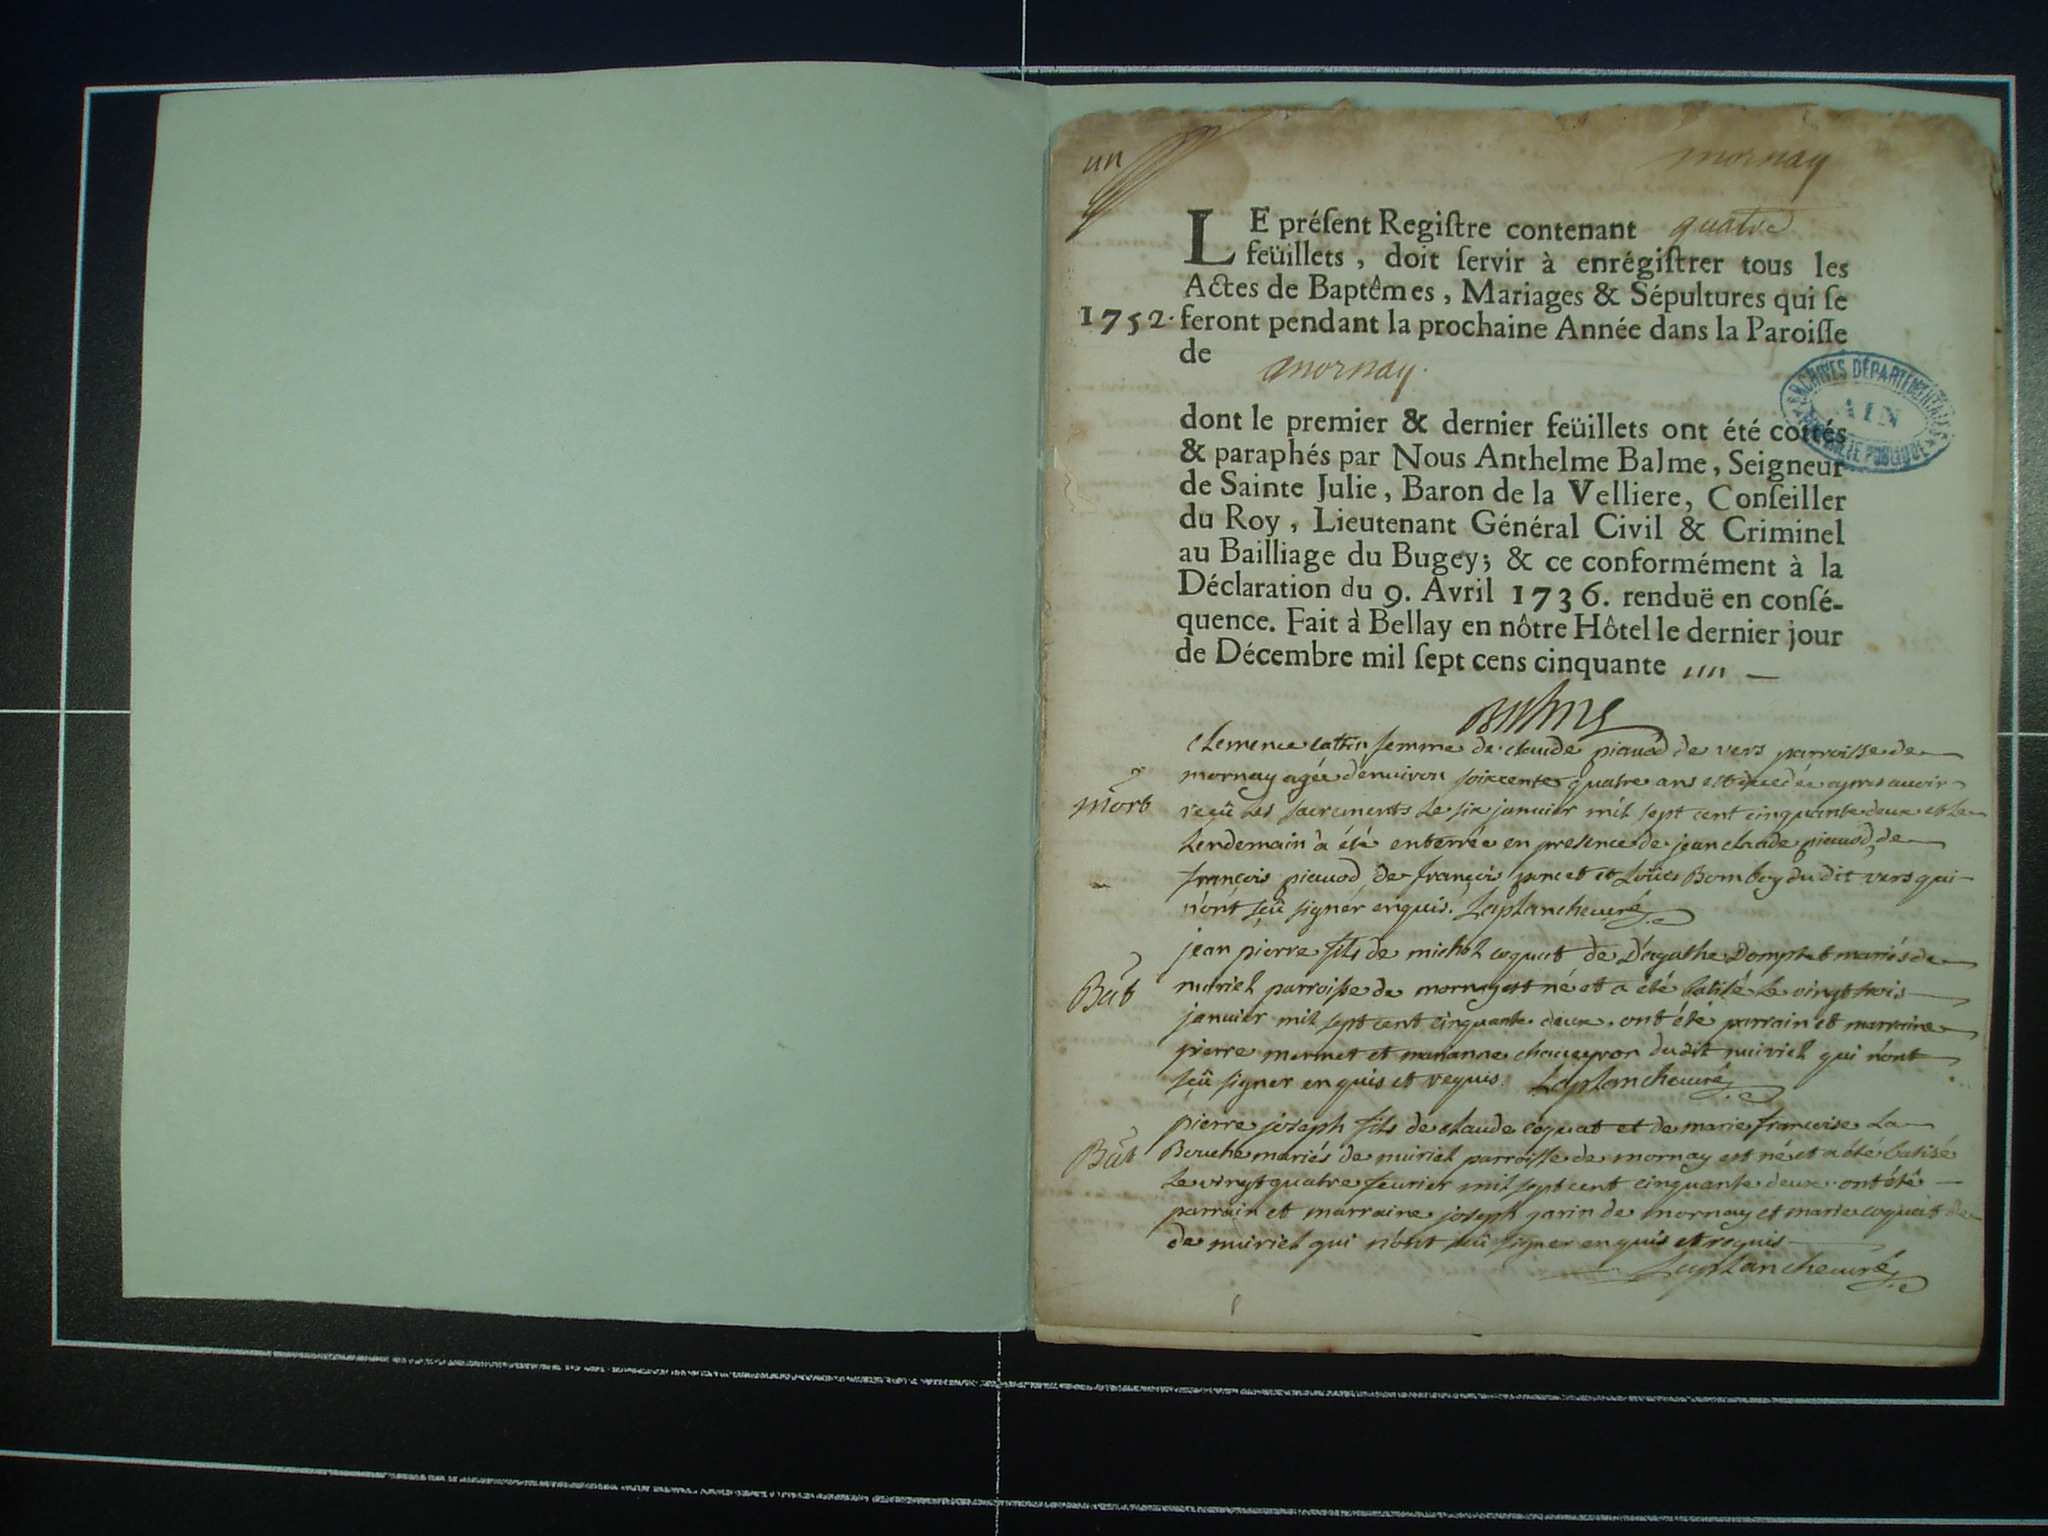 un
mornay
LE préſent Regiſtre contenant quatre
feüillets, doit ſervir à enrégiſtrer tous les
Actes de Baptêmes, Mariages & Sépultures qui ſe
1752. feront pendant la prochaine Année dans la Paroiſſe
de mornay.
ARCHIVES DÉPARTEMENTALES
AIN
PUBLIQUE
dont le premier & dernier feüillets ont été cottés
& paraphés par Nous Anthelme Balme, Seigneur
de Sainte Julie, Baron de la Velliere, Conſeiller
du Roy, Lieutenant Général Civil & Criminel
au Bailliage du Bugey; & ce conformément à la
Déclaration du 9. Avril 1736. renduë en conſé-
quence. Fait à Bellay en nôtre Hôtel le dernier jour
de Décembre mil ſept cens cinquante un
Balme
clemence femme de claude piauod de vers parroisse de
mornay agée d'enuiron soixente quatre ans est decedée apres auoir
mort
reçû les sacrements le six januier mil sept cent cinquante deux et le
lendemain à été enterrée en presence de jean claude piauod, de
françois piauod de françois et Loüis Bomboy du dit vers qui
n'ont sçû signér enquis. Laplanche curé
jean pierre fils de michel coquat de D'agathe mariés de
Bat
muriel parroisse de mornay est né et a été batisé le vingt trois
januier mil sept cent cinquante deux. ont été parrain et marraine
pierre mermet et marianne du dit muriel qui n'ont
sçû signer enquis et requis. Laplanche curé
pierre joseph fils de claude coquat et de marie françoise La
Bat
Bouche mariés de muriel parroisse de mornay est né et a été batisé
le vingt quatre feurier mil sept cent cinquante deux. ont été
parrain et marraine joseph jarin de mornay et marie coquat de
de muriel qui n'ont sçû signer enquis et requis
Laplanche curé